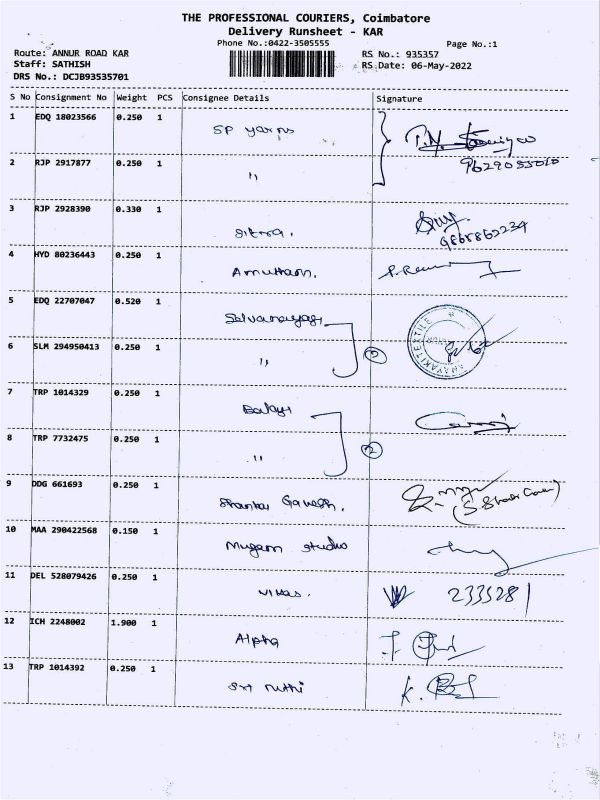 THE PROFESSIONAL COURIERS, Coimbatore
Delivery Runsheet - KAR
Phone No.:0422-3505555
Page No.:1
Route: ANNUR ROAD KAR
Staff: SATHISH
DRS No.: DCJB93535701
RS No.: 935357
RS Date: 06-May-2022
S No Consignment No Weight PCS Consignee Details Signature
1 EDQ 18023566 0.250 1 SP yarns
2 RJP 2917877 0.250 1 "
3 RJP 2928390 0.330 1 sitra. 9865862234
4 HYD 80236443 0.250 1 Amutham.
5 EDQ 22707047 0.520 1 Selvanayagi
6 SLM 294950413 0.250 1 " 2
7 TRP 1014329 0.250 1 Balaji
8 TRP 7732475 0.250 1 " 2
9 DDG 661693 0.250 1 Shankar Ganesh.
10 MAA 290422568 0.150 1 Mugam studio
11 DEL 528079426 0.250 1 vikas. 2335281
12 ICH 2248002 1.900 1 Alpha
13 TRP 1014392 0.250 1 Sri ruthi